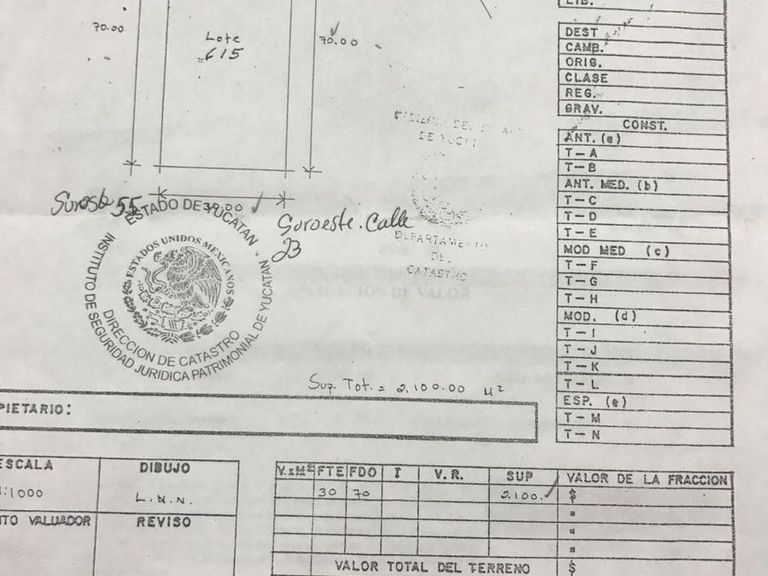 LIB.
DEST
CAMB.
ORIG.
CLASE
REG.
GRAV.
CONST.
ANT. (a)
T-A
T-B
ANT MED. (b)
T-C
T-D
T-E
MOD MED (c)
T-F
T-G
T-H
MOD. (d)
T-I
T-J
T-K
T-L
ESP. (e)
T-M
T-N
70.00
Lote
615
70.00
DE YUCA
DEPARTAMENTO
DEL
CATASTRO
55
Suroeste. Calle
23
ESTADO DE YUCATAN
INSTITUTO DE SEGURIDAD JURIDICA PATRIMONIAL DE YUCATAN
ESTADOS UNIDOS MEXICANOS
DIRECCION DE CATASTRO
DE VALOR
Sup. Tot. = 2,100.00 M²
PIETARIO:
ESCALA
1:1000
DIBUJO
L.N.N.
TO VALUADOR
REVISO
V.xM² FTE FDO I V.R. SUP VALOR DE LA FRACCION
30 70 2,100. $
"
"
"
VALOR TOTAL DEL TERRENO $